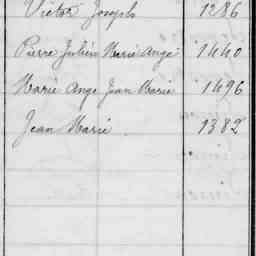 Victor Joseph 1286
Pierre Julien Marie Ange 1440
Marie Ange Jean Marie 1496
Jean Marie 1382